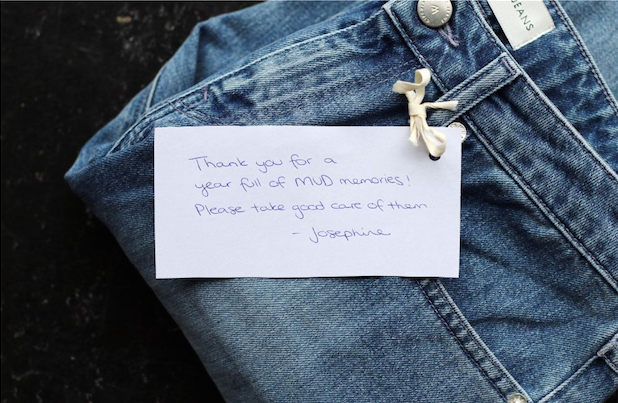 JEANS
Thank you for a
year full of MUD memories!
Please take good care of them
- Josephine